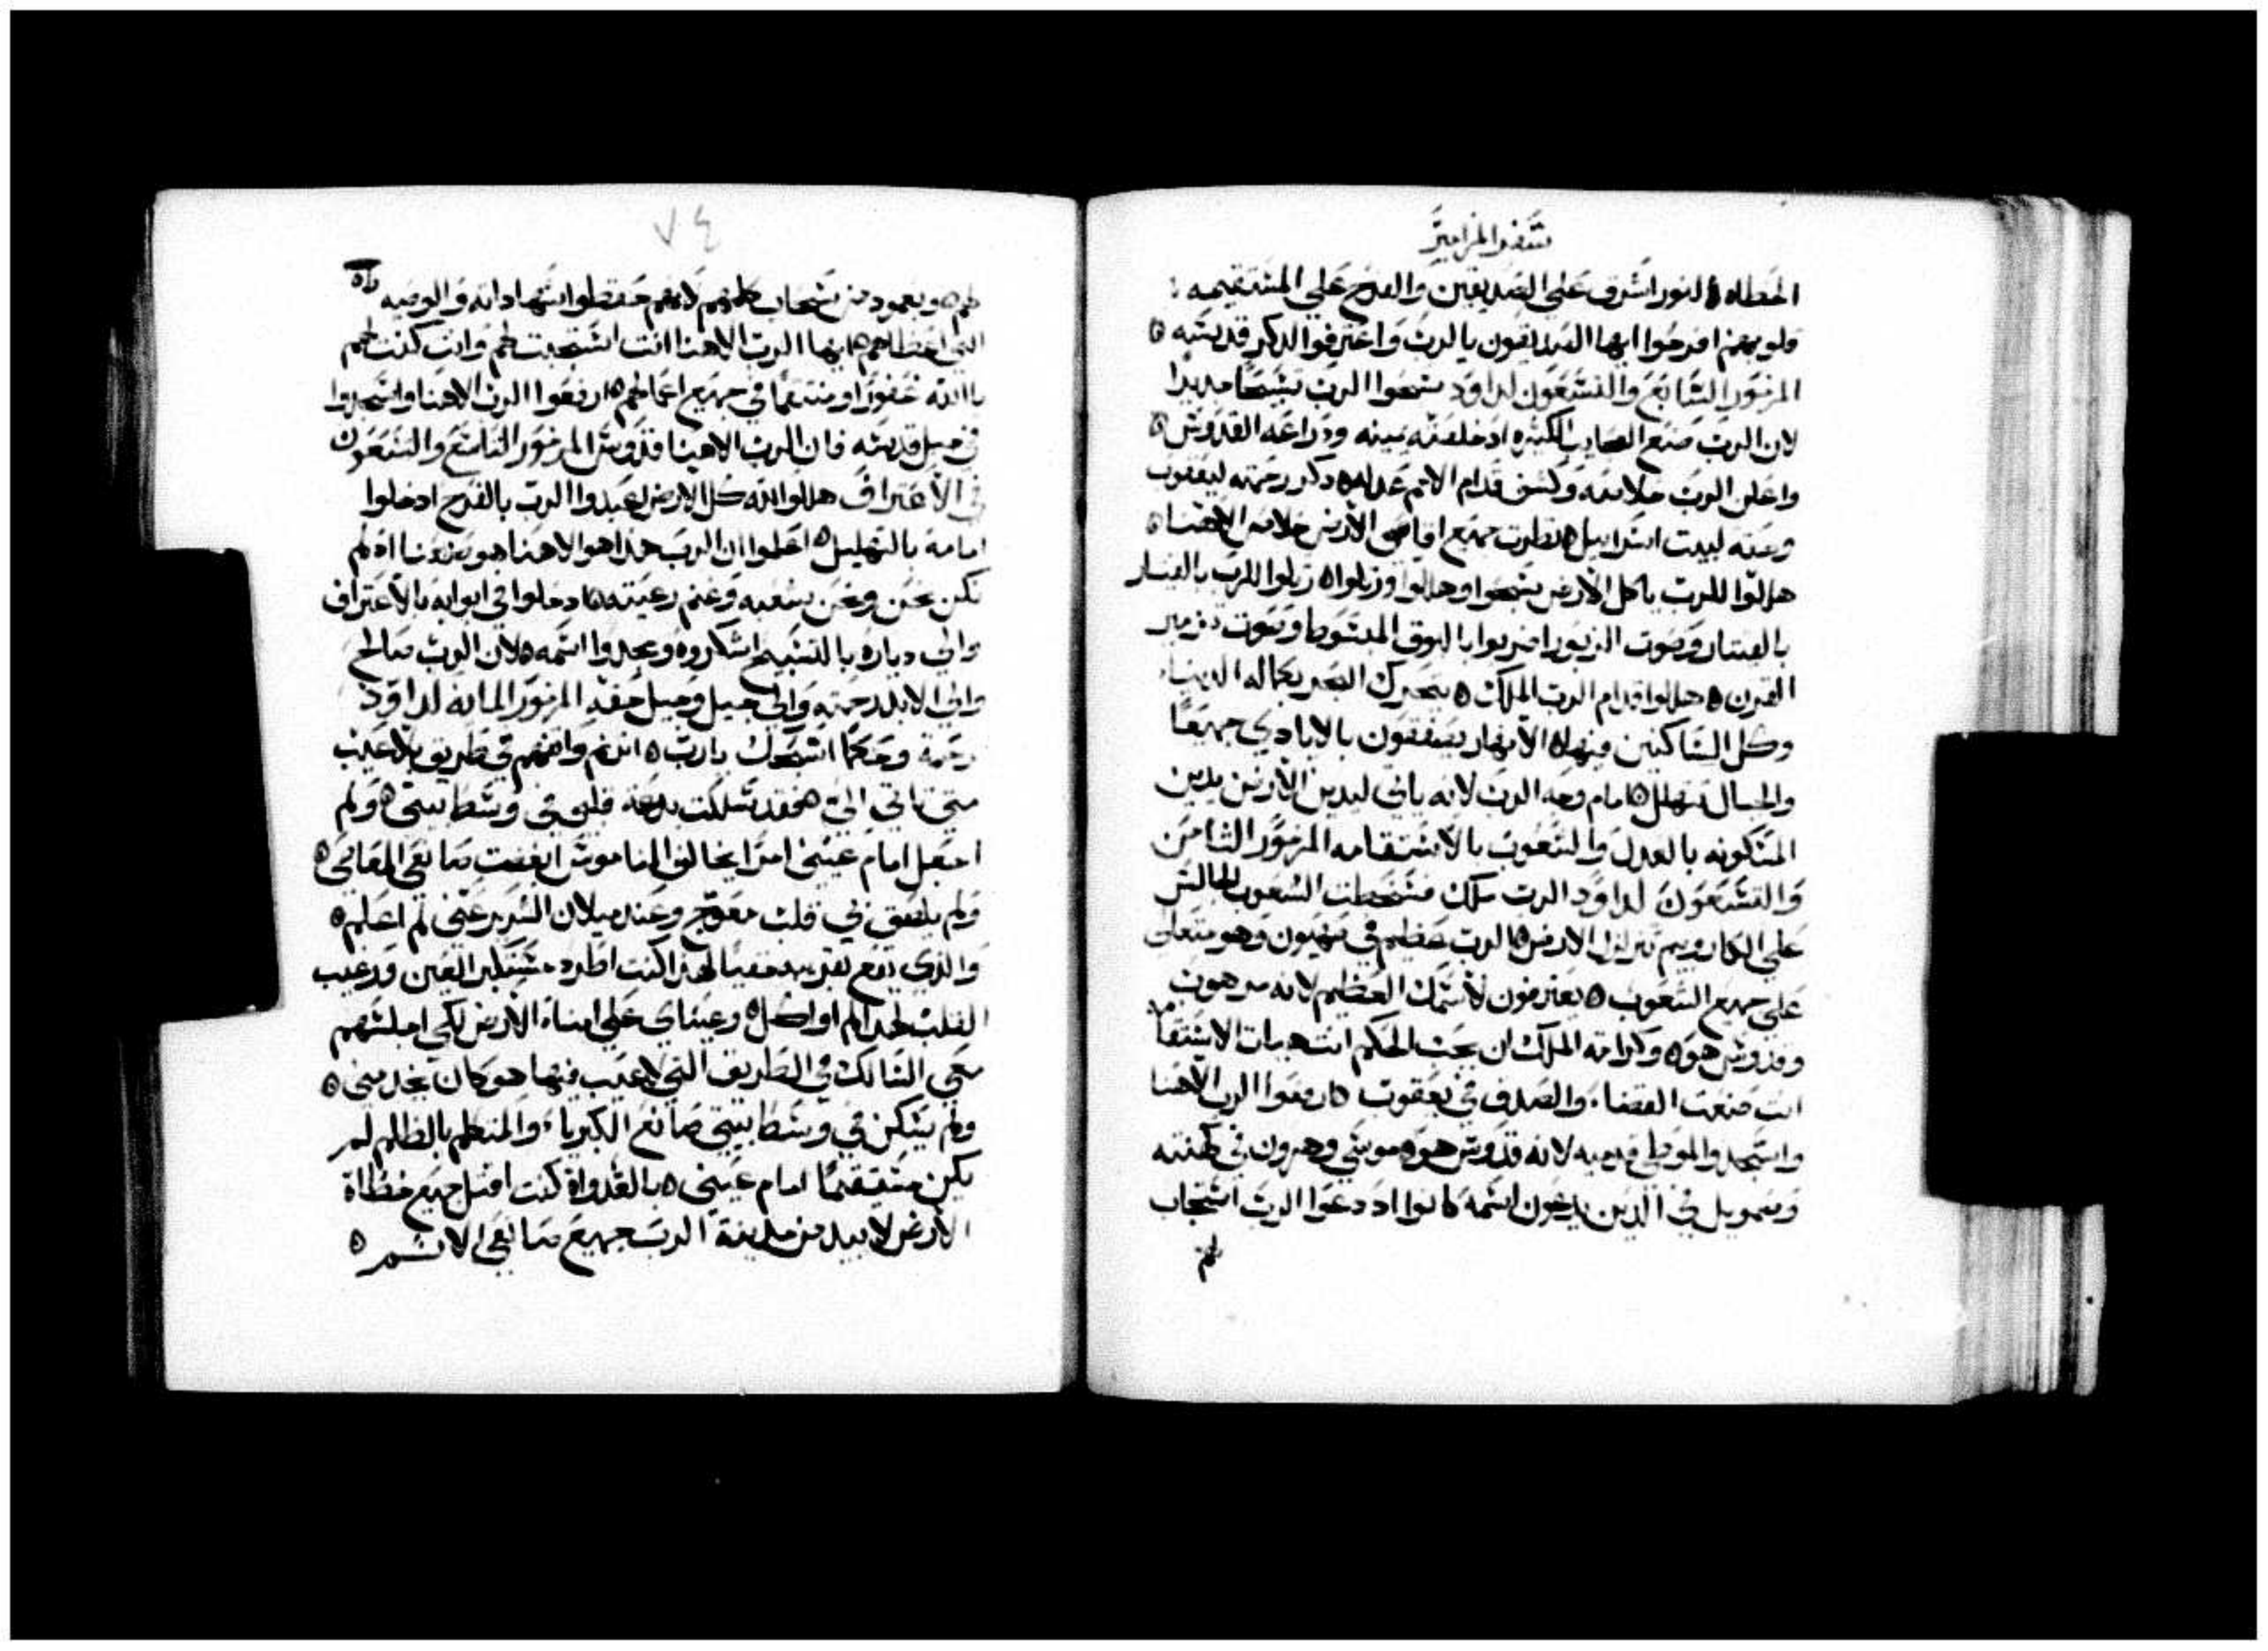 سفر المزامير
الخطاه ٥ النور اشرق علي الصديقين والفرح علي المستقيمه
قلوبهم افرحوا ايها الصديقون بالرب واعترفوا لذكر قدسه ٥
المزمور السابع والتسعون لداود سبحوا الرب تسبحا جديدا
لان الرب صنع العجايب الكثيره اذ خلصته يمينه وذراعه القدوس ٥
واعلن الرب خلاصه وكشف قدام الامم عدله ٥ ذكر رحمته ليعقوب
وعدله لبيت اسراييل ٥ نظرت جميع اقاصي الارض خلاص الاهنا ٥
هللوا للرب ياكل الارض سبحوا وهللوا ورتلوا ٥ رتلوا للرب بالقيتار
بالقيتار وصوت الزبور اضربوا بالبوق المبسوط وصوت مزمير
القرن ٥ هللوا قدام الرب الملك ٥ يتحرك البحر بكماله الدنيا
وكل الساكنين فيها ٥ الانهار يصفقون بالايادي جميعا
والجبال تتهلل ٥ امام وجه الرب لانه ياتي ليدين الارض يدين
المسكونه بالعدل والشعوب بالاستقامه المزمور الثامن
والتسعون لداود الرب ملك فسخطت الشعوب الجالس
علي الكاروبيم تتزلزل الارض ٥ الرب عظيم في صهيون وهو متعال
علي جميع الشعوب ٥ يعترفون لاسمك العظيم لانه مرهوب
وقدوس هو ٥ وكرامة الملك ان يحب الحكم انت هيات الاستقامه
انت صنعت القضاء والصدق في يعقوب ٥ ارفعوا الرب الاهنا
واسجدوا لموطي قدميه لانه قدوس هو ٥ موسي وهرون في كهنته
وصمويل في الذين يدعون اسمه كانوا اذ دعوا الرب استجاب
لهم
٧٤
لهم ٥ وبعمود من سحاب كلمهم لانهم حفظوا شهاداته والوصيه
التي اعطاهم ٥ ايها الرب الاهنا انت استجبت لهم وانت كنت لهم
يا الله غفورا ومنتقما في جميع اعمالهم ٥ ارفعوا الرب الاهنا واسجدوا
في جبل قدسه فان الرب الاهنا قدوس المزمور التاسع والتسعون
في الاعتراف هللوا لله كل الارض اعبدوا الرب بالفرح ادخلوا
امامه بالتهليل ٥ اعلموا ان الرب هذا هو الاهنا هو صنعنا اذ لم
نكن نحن ونحن شعبه وغنم رعيته ٥ ادخلوا في ابوابه بالاعتراف
والي دياره بالتسبيح اشكروه ومجدوا اسمه ٥ لان الرب صالح
والي الابد رحمته والي جيل وجيل حقه المزمور المايه لداود
رحمة وحكما اسبحك يارب ٥ ارنم وافهم في طريق بلا عيب
متي تاتي الي ٥ فقد سلكت بدعة قلبي في وسط بيتي ٥ ولم
اجعل امام عيني امرا يخالف الناموس ابغضت صانعي المعاصي ٥
ولم يلصق بي قلب معوج وعند ميلان الشرير عني لم اعلم ٥
والذي يقع بقريبه خفيا لهذا كنت اطرد مستكبر العين ورغيب
القلب لهذا لم اواكل ٥ وعيناي علي امناء الارض لكي اجلسهم
معي السالك في الطريق التي لا عيب فيها هو كان يخدمني ٥
ولم يسكن في وسط بيتي صانع الكبرياء والمتكلم بالظلم لم
يكن مستقيما امام عيني ٥ بالغدواة كنت اقتل جميع خطاة
الارض لابيد من مدينة الرب جميع صانعي الاثم ٥